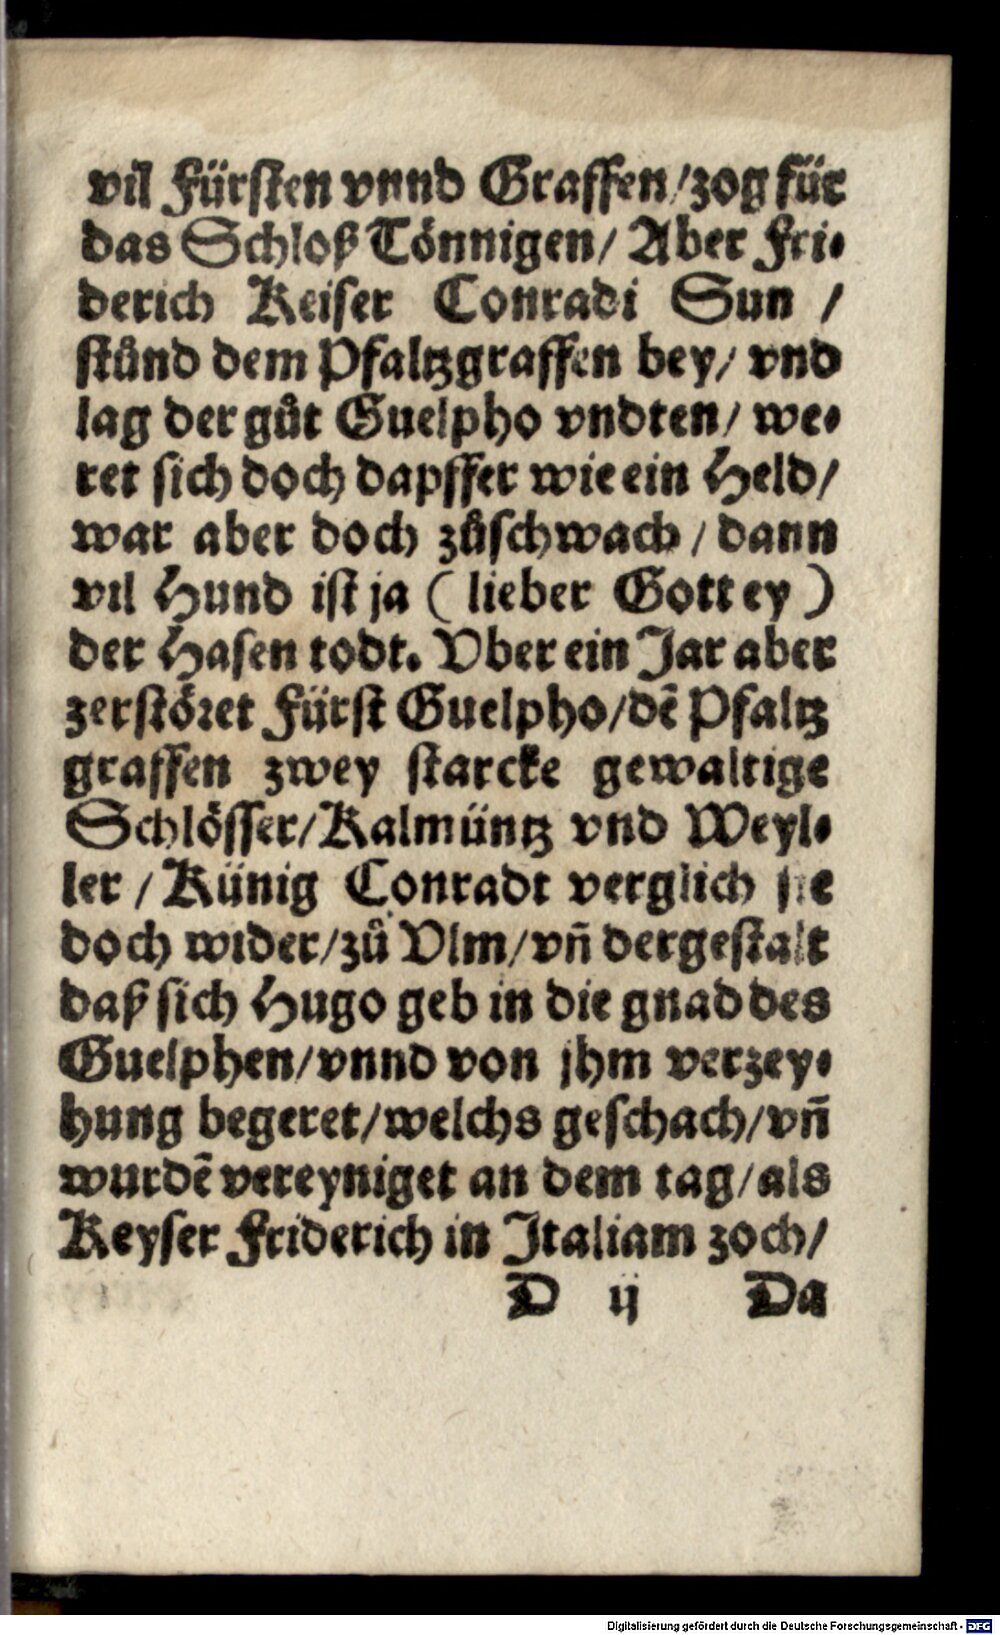 vil Fürsten vnnd Graffen / zog für
das Schloß Tönnigen / Aber Fri-
derich Keiser Conradi Sun /
stůnd dem Pfaltzgraffen bey / vnd
lag der gůt Guelpho vndten / we-
ret sich doch dapffer wie ein Held /
war aber doch zůschwach / dann
vil Hund ist ja ( lieber Gott ey )
der Hasen todt. Vber ein Jar aber
zerstöret Fürst Guelpho / dẽ Pfaltz
graffen zwey starcke gewaltige
Schlösser / Kalmüntz vnd Weyl-
ler / Künig Conradt verglich sie
doch wider / zů Vlm / vñ dergestalt
daß sich Hugo geb in die gnad des
Guelphen / vnnd von jhm verzey-
hung begeret / welchs geschach / vñ
wurdẽ vereyniget an dem tag / als
Keyser Friderich in Italiam zoch /
D ij Da
Digitalisierung gefördert durch die Deutsche Forschungsgemeinschaft - DFG